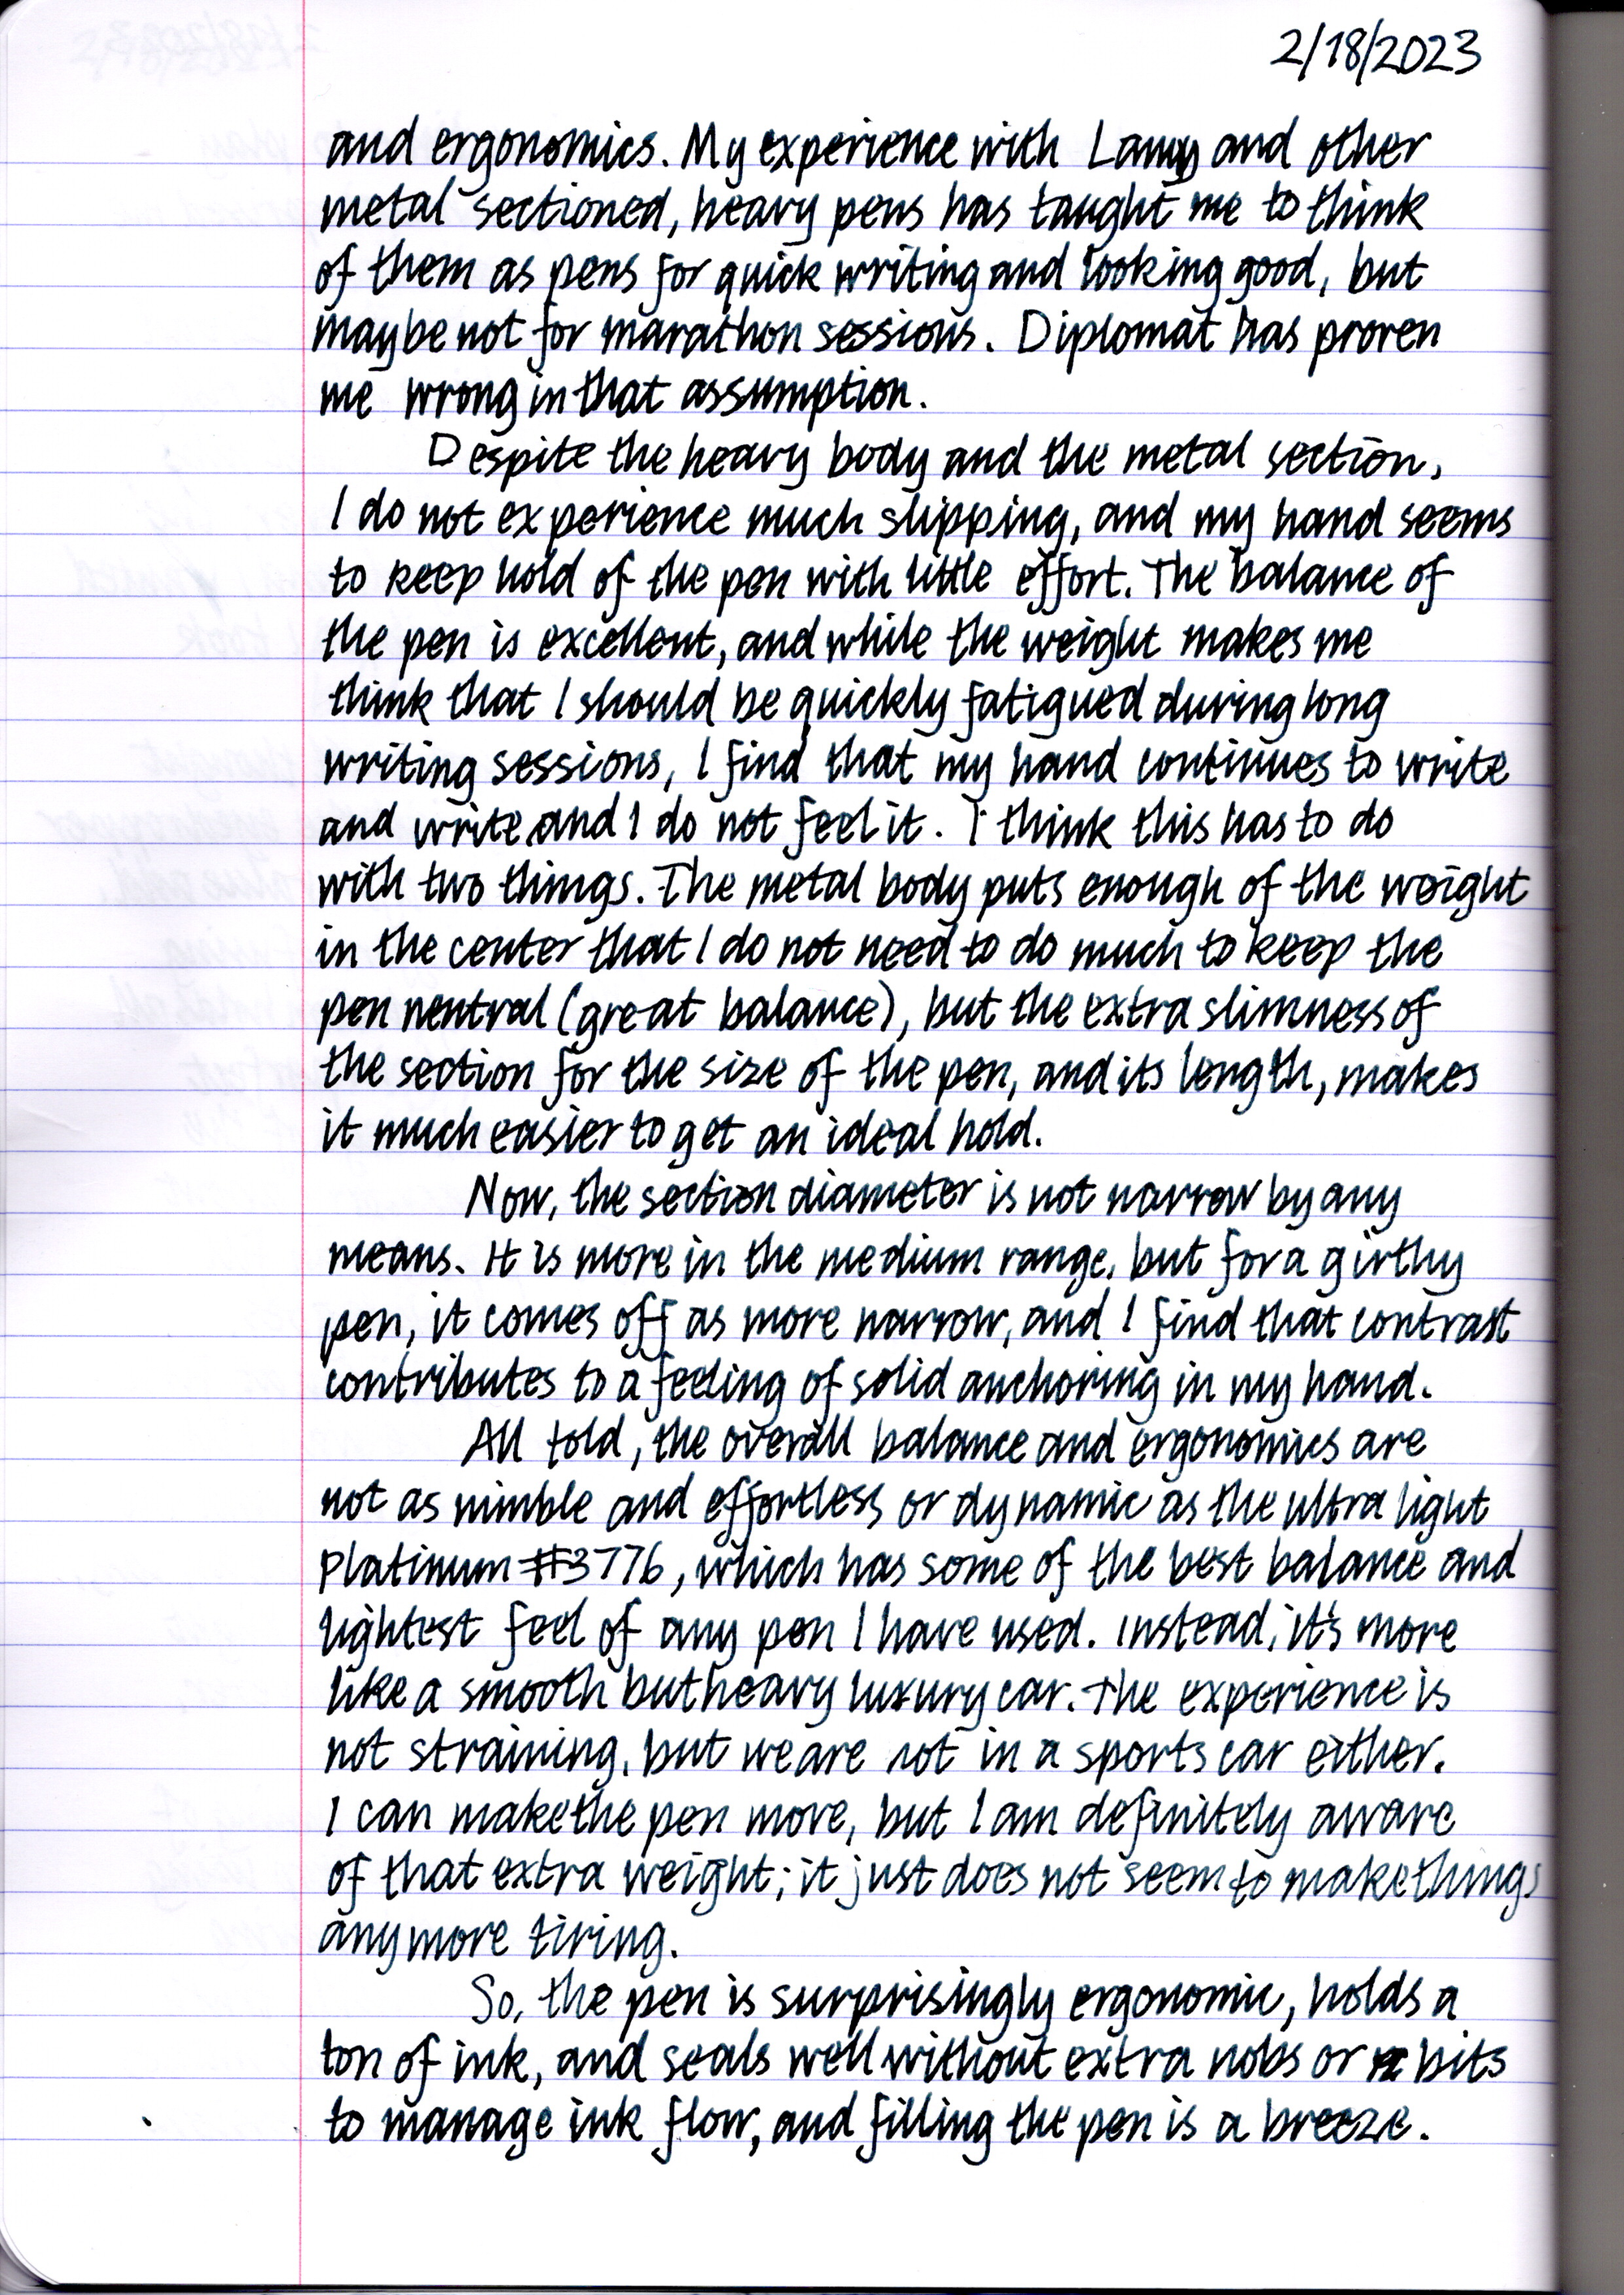 2/18/2023
and ergonomics. My experience with Lamy and other
metal sectioned, heavy pens has taught me to think
of them as pens for quick writing and looking good, but
maybe not for marathon sessions. Diplomat has proven
me wrong in that assumption.
Despite the heavy body and the metal section,
I do not experience much slipping, and my hand seems
to keep hold of the pen with little effort. The balance of
the pen is excellent, and while the weight makes me
think that I should be quickly fatigued during long
writing sessions, I find that my hand continues to write
and write and I do not feel it. I think this has to do
with two things. The metal body puts enough of the weight
in the center that I do not need to do much to keep the
pen neutral (great balance), but the extra slimness of
the section for the size of the pen, and its length, makes
it much easier to get an ideal hold.
Now, the section diameter is not narrow by any
means. It is more in the medium range, but for a girthy
pen, it comes off as more narrow, and I find that contrast
contributes to a feeling of solid anchoring in my hand.
All told, the overall balance and ergonomics are
not as nimble and effortless or dynamic as the ultra light
Platinum #3776, which has some of the best balance and
lightest feel of any pen I have used. Instead, it's more
like a smooth but heavy luxury car. The experience is
not straining, but we are not in a sports car either.
I can make the pen move, but I am definitely aware
of that extra weight; it just does not seem to make things
any more tiring.
So, the pen is surprisingly ergonomic, holds a
ton of ink, and seals well without extra nobs or bits
to manage ink flow, and filling the pen is a breeze.